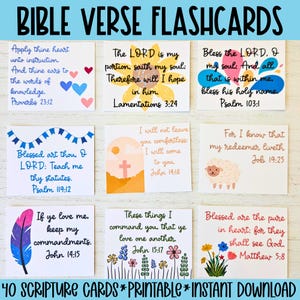 BIBLE VERSE FLASHCARDS
Apply thine heart
unto instruction
And thine ears to
the words of
knowledge.
Proverbs 23:12
The LORD is my
portion, saith my soul;
Therefore will I hope
in him.
Lamentations 3:24
Bless the LORD, O
my soul: And all
that is within me,
bless his holy name.
Psalm 103:1
Blessed art thou, O
LORD: Teach me
thy statutes.
Psalm 119:12
I will not leave
you comfortless:
I will come
to you.
John 14:18
For I know that
my redeemer liveth
Job 19:25
If ye love me,
keep my
commandments.
John 14:15
These things I
command you, that ye
love one another.
John 15:17
Blessed are the pure
in heart: for they
shall see God.
Matthew 5:8
40 SCRIPTURE CARDS*PRINTABLE*INSTANT DOWNLOAD